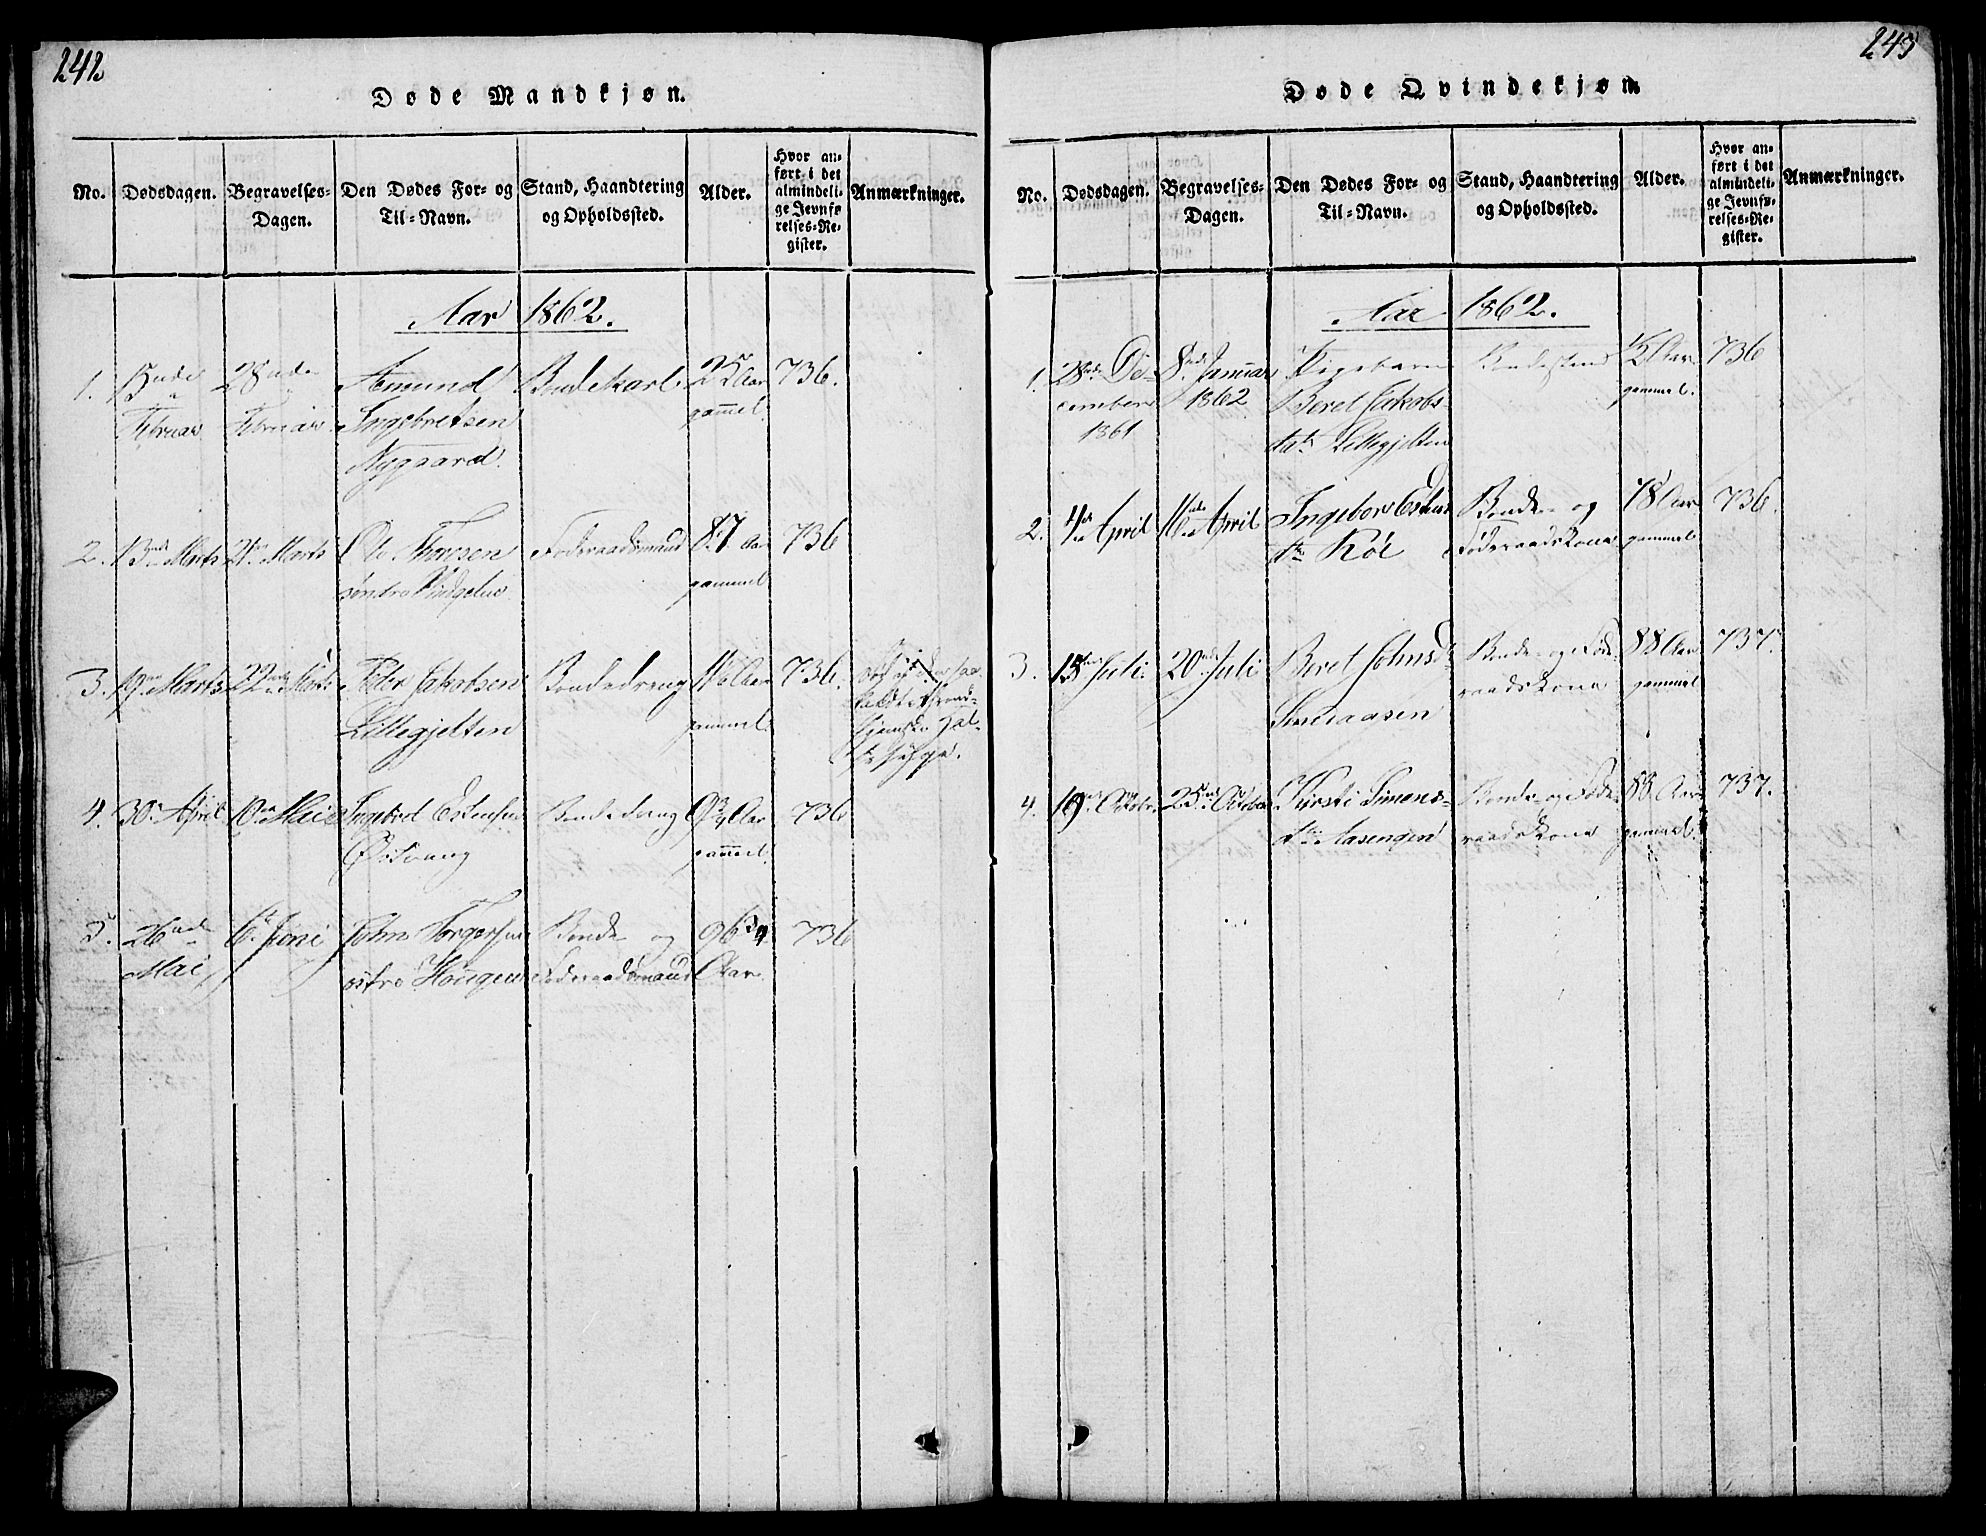 242
Døde Mandkjøn.
No.
Dødsdagen.
Begravelses-
Dagen.
Den Dødes For- og
Til-Navn.
Stand, Haandtering
og Opholdssted.
Alder.
Hvor an-
ført i det
almindeli-
ge Jevnfø-
relses-Re-
gister.
Anmærkninger.
Aar 1862.
1.
Februar
28
Februar
Amund
Ingebretsen
Nygaard.
Bondekarl
25 Aar
gammel
736.
2.
13 Marts
21 Marts
Ole Thoresen
søndre
Føderaadsmand
87 Aar
gammel
736
3.
19 Marts
22 Marts
Peder Jakobsen
Lillegjelten
Bondedreng
Aar
gammel
736.
4.
30 April
10 Mai
Ingebret Estensen
Østvang
Bondedreng
Aar
gammel.
736
5.
26
Mai
6 Juni
John Torgersen
østre Hougen
Bonde og
Føderaadsmand
96 3/4
Aar.
736
243
Døde Qvindekjøn.
No.
Dødsdagen.
Begravelses-
Dagen.
Den Dødes For- og
Til-Navn.
Stand, Haandtering
og Opholdssted.
Alder.
Hvor an-
ført i det
almindeli-
ge Jevnfø-
relses-Re-
gister.
Anmærkninger.
Aar 1862.
1.
28 De-
cember
1861
8 Januar
1862
Pigebarn
Beret Jakobs-
datr Lillegjelten
Bondestand
Aar
gammel.
736
2.
4 April
16 April
Ingebor Estens
Køl
Bonde- og
Føderaadskone
78 Aar
gammel
736.
3.
15 Juli.
20 Juli
Beret Johns
Bonde- og Føde-
raadskone
88 Aar
gammel
737.
4.
19 Oktobr.
25 Oktober
Kirsti Simens-
dtr Aasengen
Bonde- og Føde-
raadskone
88 Aar
gammel.
737.